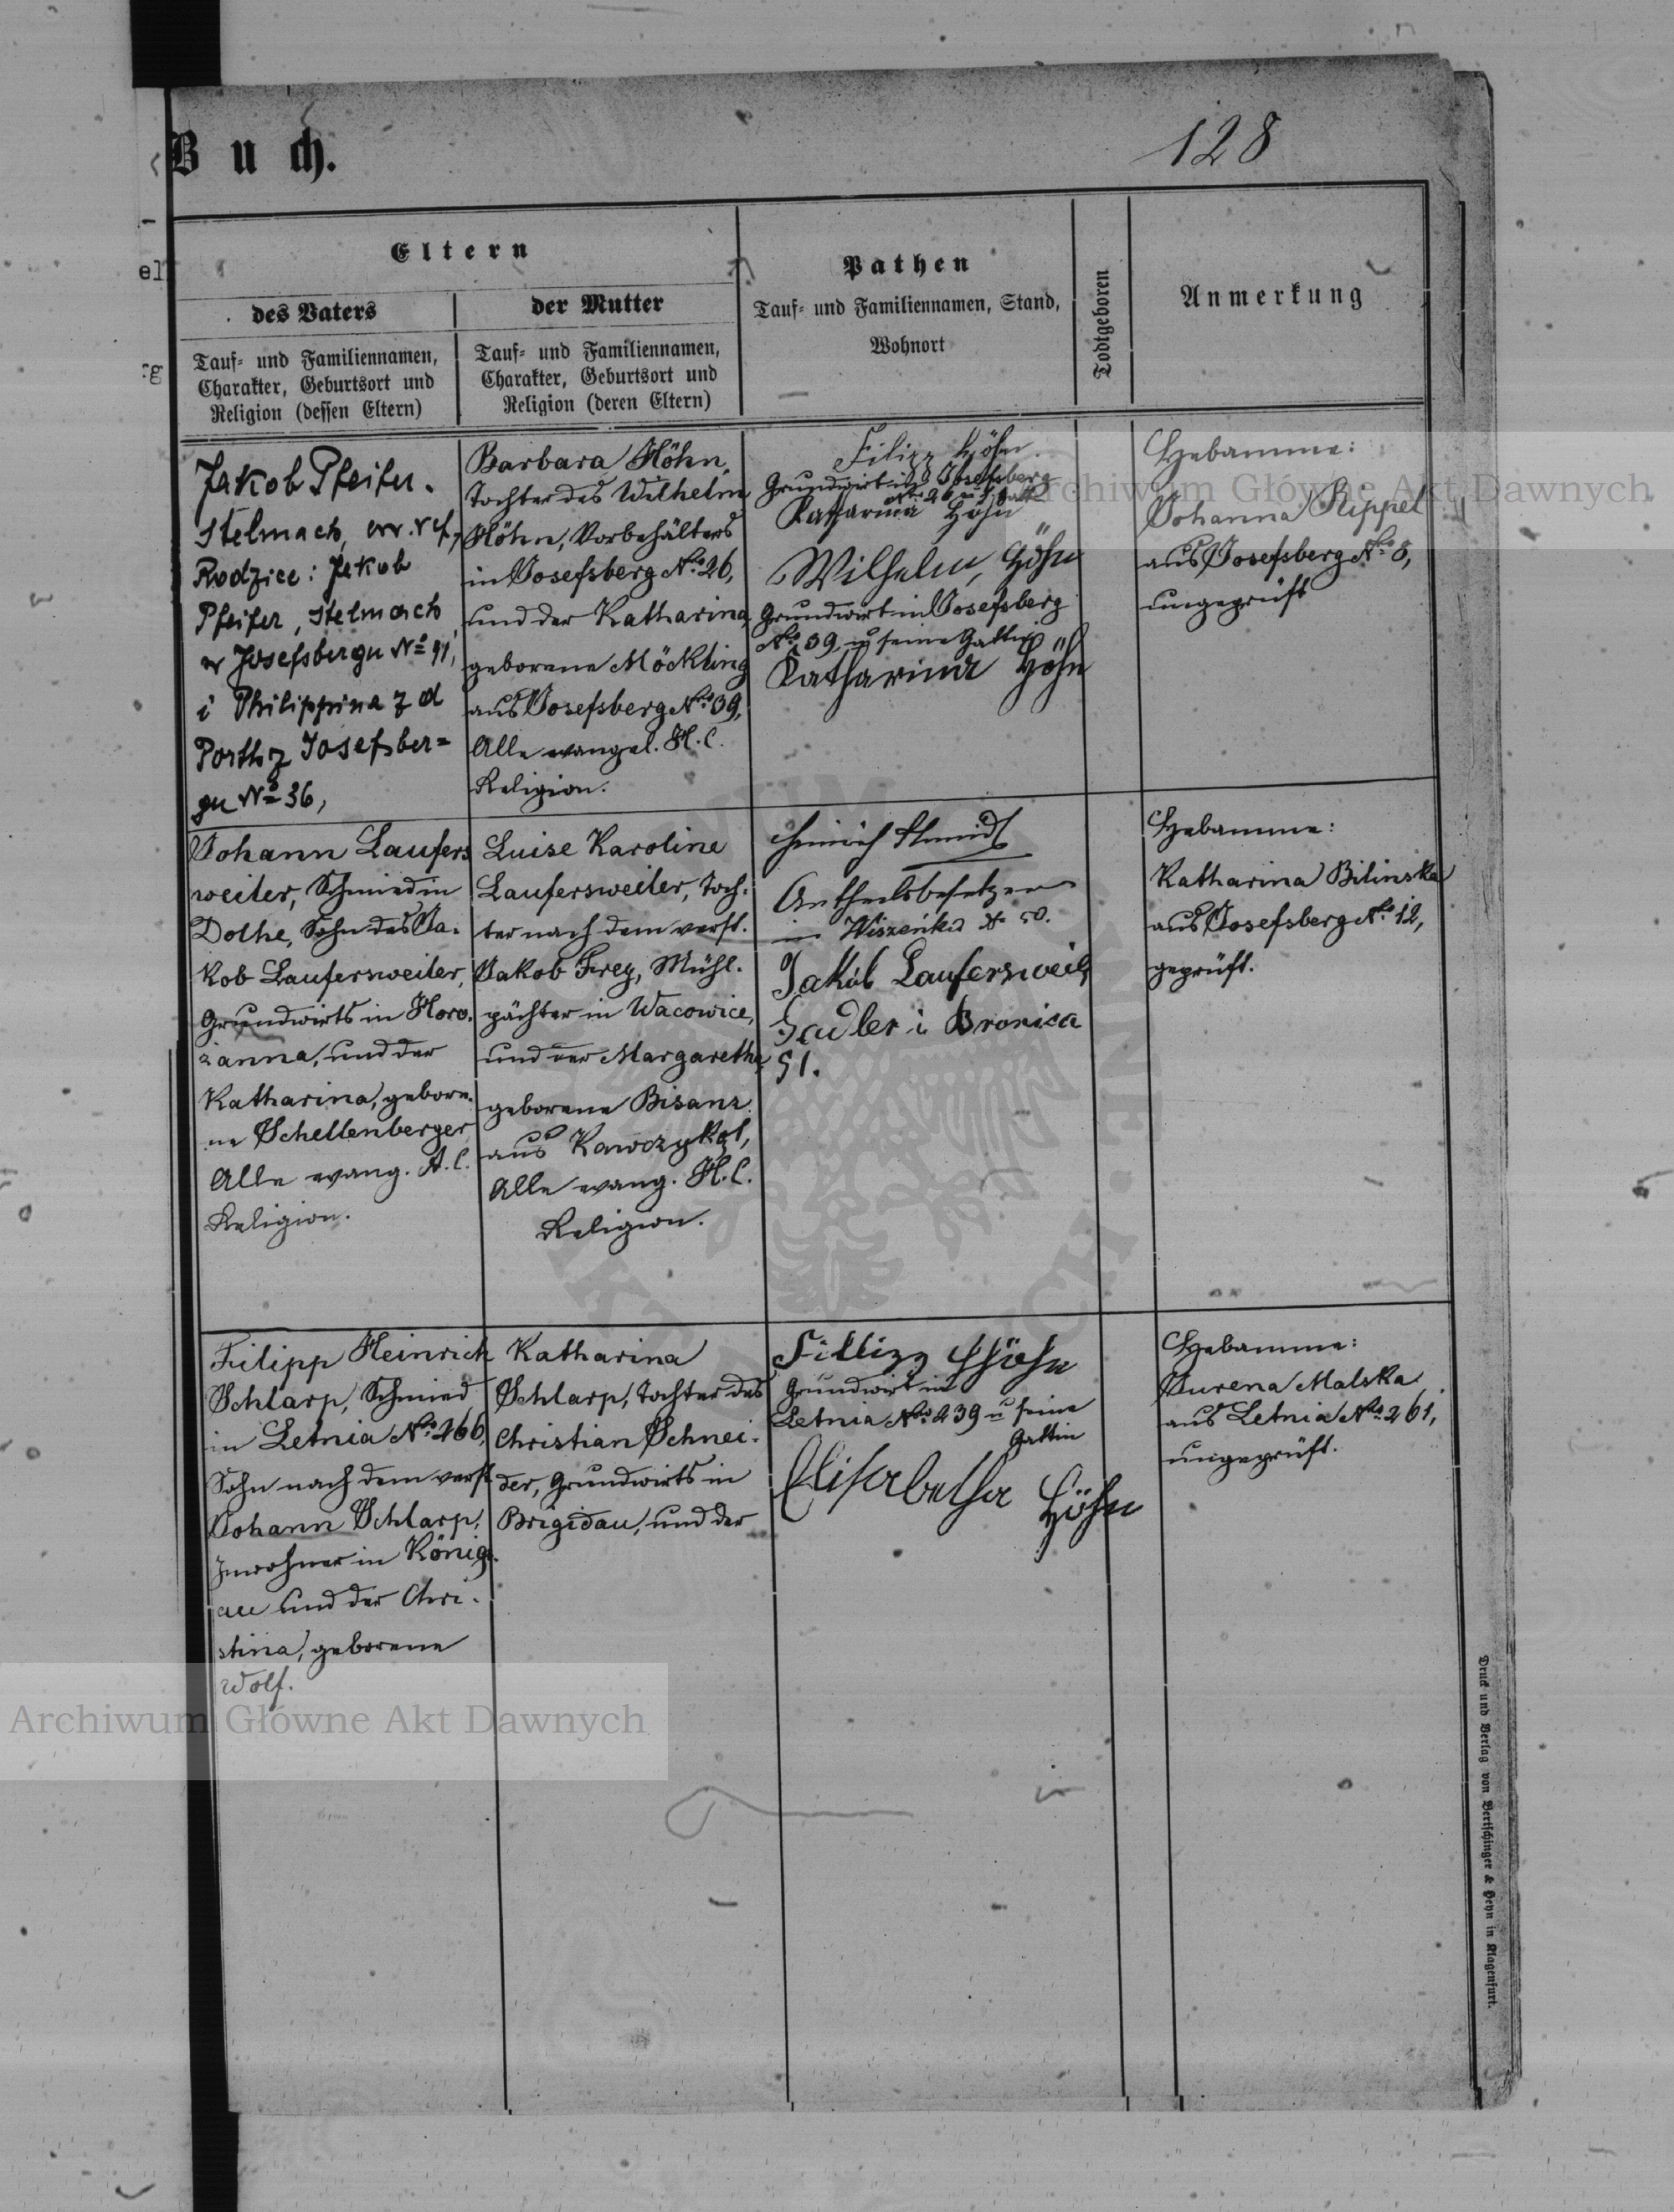 Buch.
128
Eltern
des Vaters
Tauf- und Familiennamen,
Charakter, Geburtsort und
Religion (dessen Eltern)
der Mutter
Tauf- und Familiennamen,
Charakter, Geburtsort und
Religion (deren Eltern)
Pathen
Tauf- und Familiennamen, Stand,
Wohnort
Todtgeboren
Anmerkung
Jakob Pfeifer.
Stelmach, ew. ref,
Rodzice: Jakob
Pfeifer, Stelmach
w Josefsbergu No 91,
i Philippina z d
Porth z Josefsber=
gu No 36,
Barbara Höhn,
Tochter des Wilhelm
Höhn, Vorbehälters
in Josefsberg No. 26,
und der Katharina,
geborene Möckling
aus Josefsberg No. 39,
Alle evangel. H. C.
Religion.
Filipp Höhn.
Grundwirt in Josefsberg
No 26 u. s. Gattin
Katharina Höhn
Wilhelm Höhn
Grundwirt in Josefsberg
No. 39, u seine Gattin
Katharina Höhn
Hebamme:
Johanna Rippel
aus Josefsberg No. 8,
ungeprüft
Johann Laufers
weiler, Schmied in
Dolhe, Sohn des Ja-
kob Laufersweiler,
Grundwirts in Horo-
żanna, und der
Katharina, gebore-
ne Schellenberger
Alle evang. A. C.
Religion.
Luise Karoline
Laufersweiler, Toch-
ter nach dem verst.
Jakob Frey, Mühl-
pächter in Wacowice,
und der Margarethe
geborene Bisanz
aus Kawczykąt,
Alle evang. H. C.
Religion.
Heinrich Schmidt
Antheilsbesetzer
in Wiszenka No 50.
Jakób Laufersweil
Sadler i Bronica
51.
Hebamme:
Katharina Bilinska
aus Josefsberg No. 12,
geprüft.
Filipp Heinrich
Schlarp, Schmied
in Letnia No. 266,
Sohn nach dem verst.
Johann Schlarp,
Inwohner in Königs-
au und der Chri-
stina, geborene
Wolf.
Katharina
Schlarp, Tochter des
Christian Schnei-
der, Grundwirts in
Brigidau, und der
Fillipp Höhn
Grundwirt in
Letnia No. 239 u seine
Gattin
Elisabetha Höhn
Hebamme:
Jurena Malska
aus Letnia No. 261,
ungeprüft.
Druck und Verlag von Bertschinger & Heyn in Klagenfurt.
Archiwum Główne Akt Dawnych
Archiwum Główne Akt Dawnych